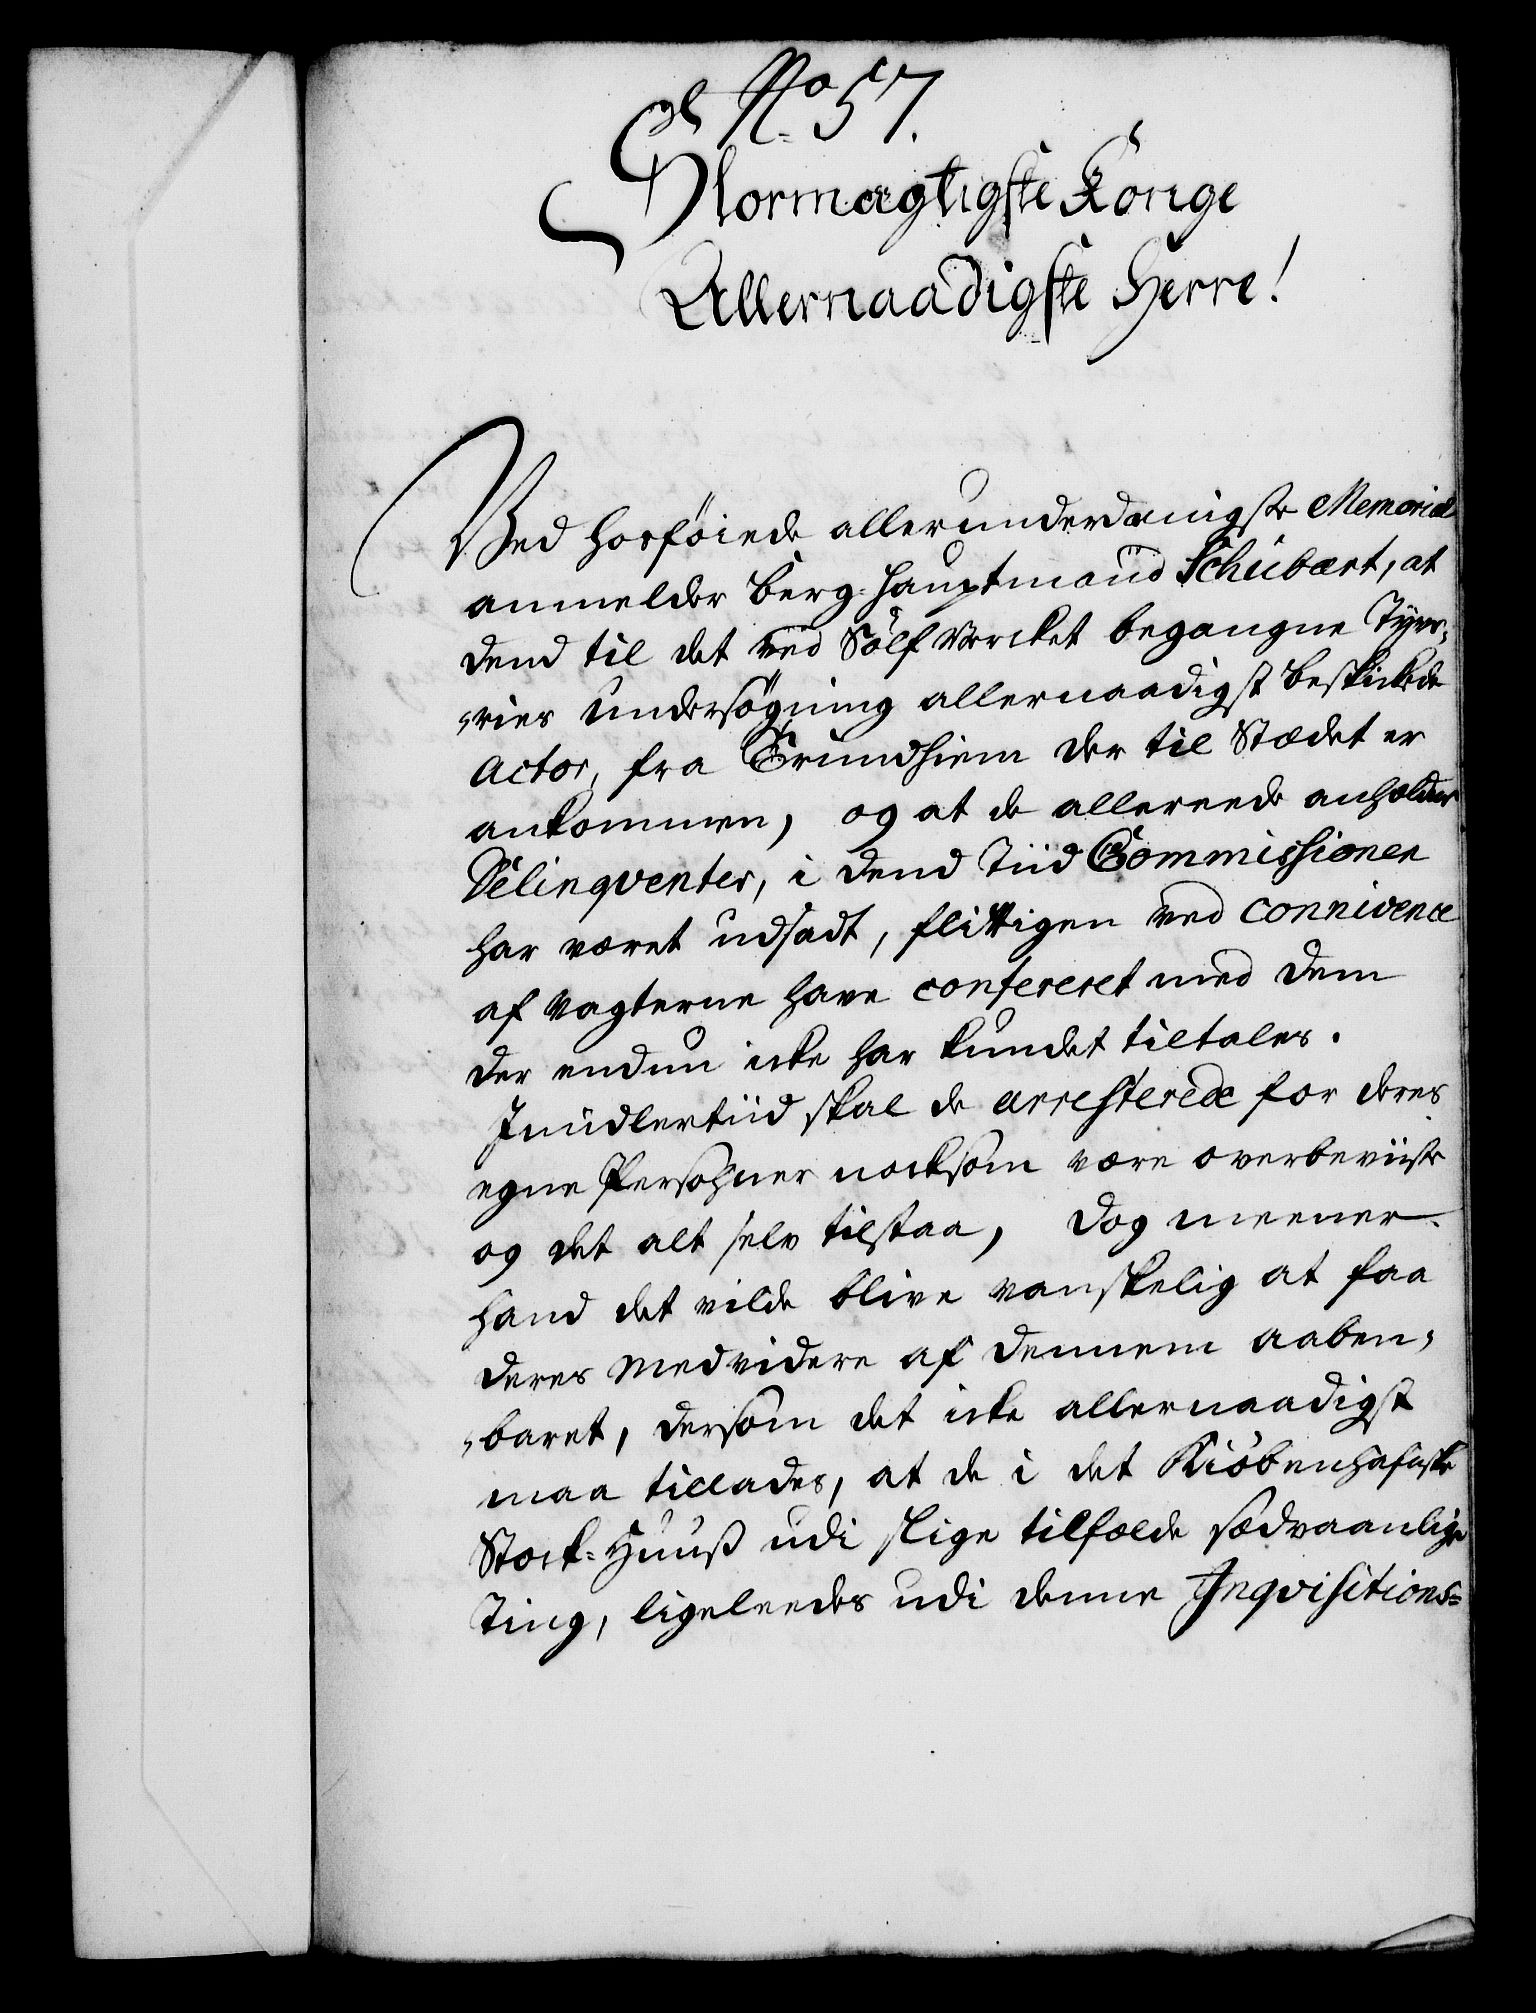 No 57.
Stormægtigste Konge
Allernaadigste Herre!
Ved hosföiede allerunderdanigste Memorial
anmelder Berg-Hauptmand Schubart, at
dend til det ved Sölf Vercket begangne Tyve-
-ries undersögning allernaadigst beskickede
Actor, fra Trundhiem der til Stædet er
ankommen, og at de allereede anholdne
Delinqventer, i dend Tiid Commissionen
har været udsadt, flittigen ved connivence
af Vagterne have confereret med dem
der endnu icke har kundet tiltales.
Imidlertiid skal de arresterede for deres
egne Persohner nocksom være overbeviiste
og det alt selv tilstaa, dog meener
hand det vilde blive vanskelig at faa
deres medvidere af dennem aaben-
-baret, dersom det icke allernaadigst
maa tillades, at de i det Kiöbenhafnske
Stock-Huuß udi slige tilfælde sædvaanlige
Ting, ligeleedes udi denne Inqvisitions-